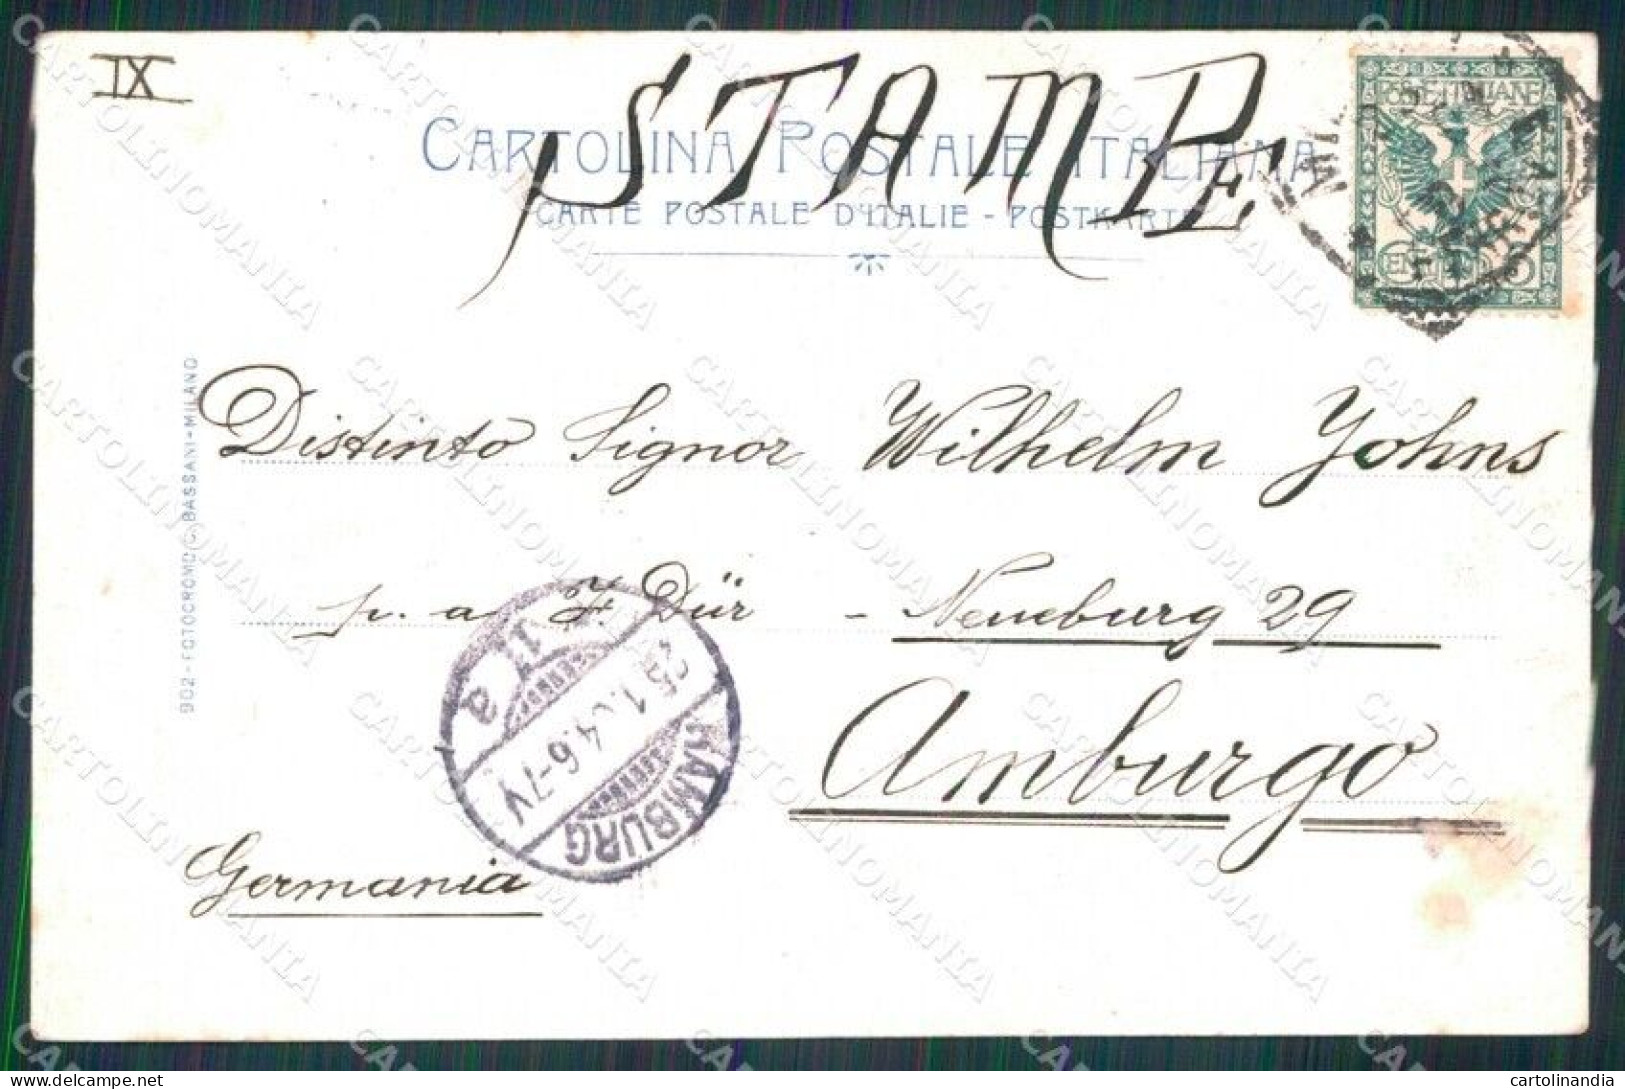 IX
STAMPE
CARTOLINA POSTALE ITALIANA
CARTE POSTALE D'ITALIE - POSTKARTE
POSTE ITALIANE
Distinto Signor Wilhelm Johns
p. a F. Dür - Neueburg 29
Amburgo
Germania
HAMBURG
25.1.04.6-7V
a
902 - FOTOCROMO C. BASSANI - MILANO
CARTOLINOMANIA
cartolinandia